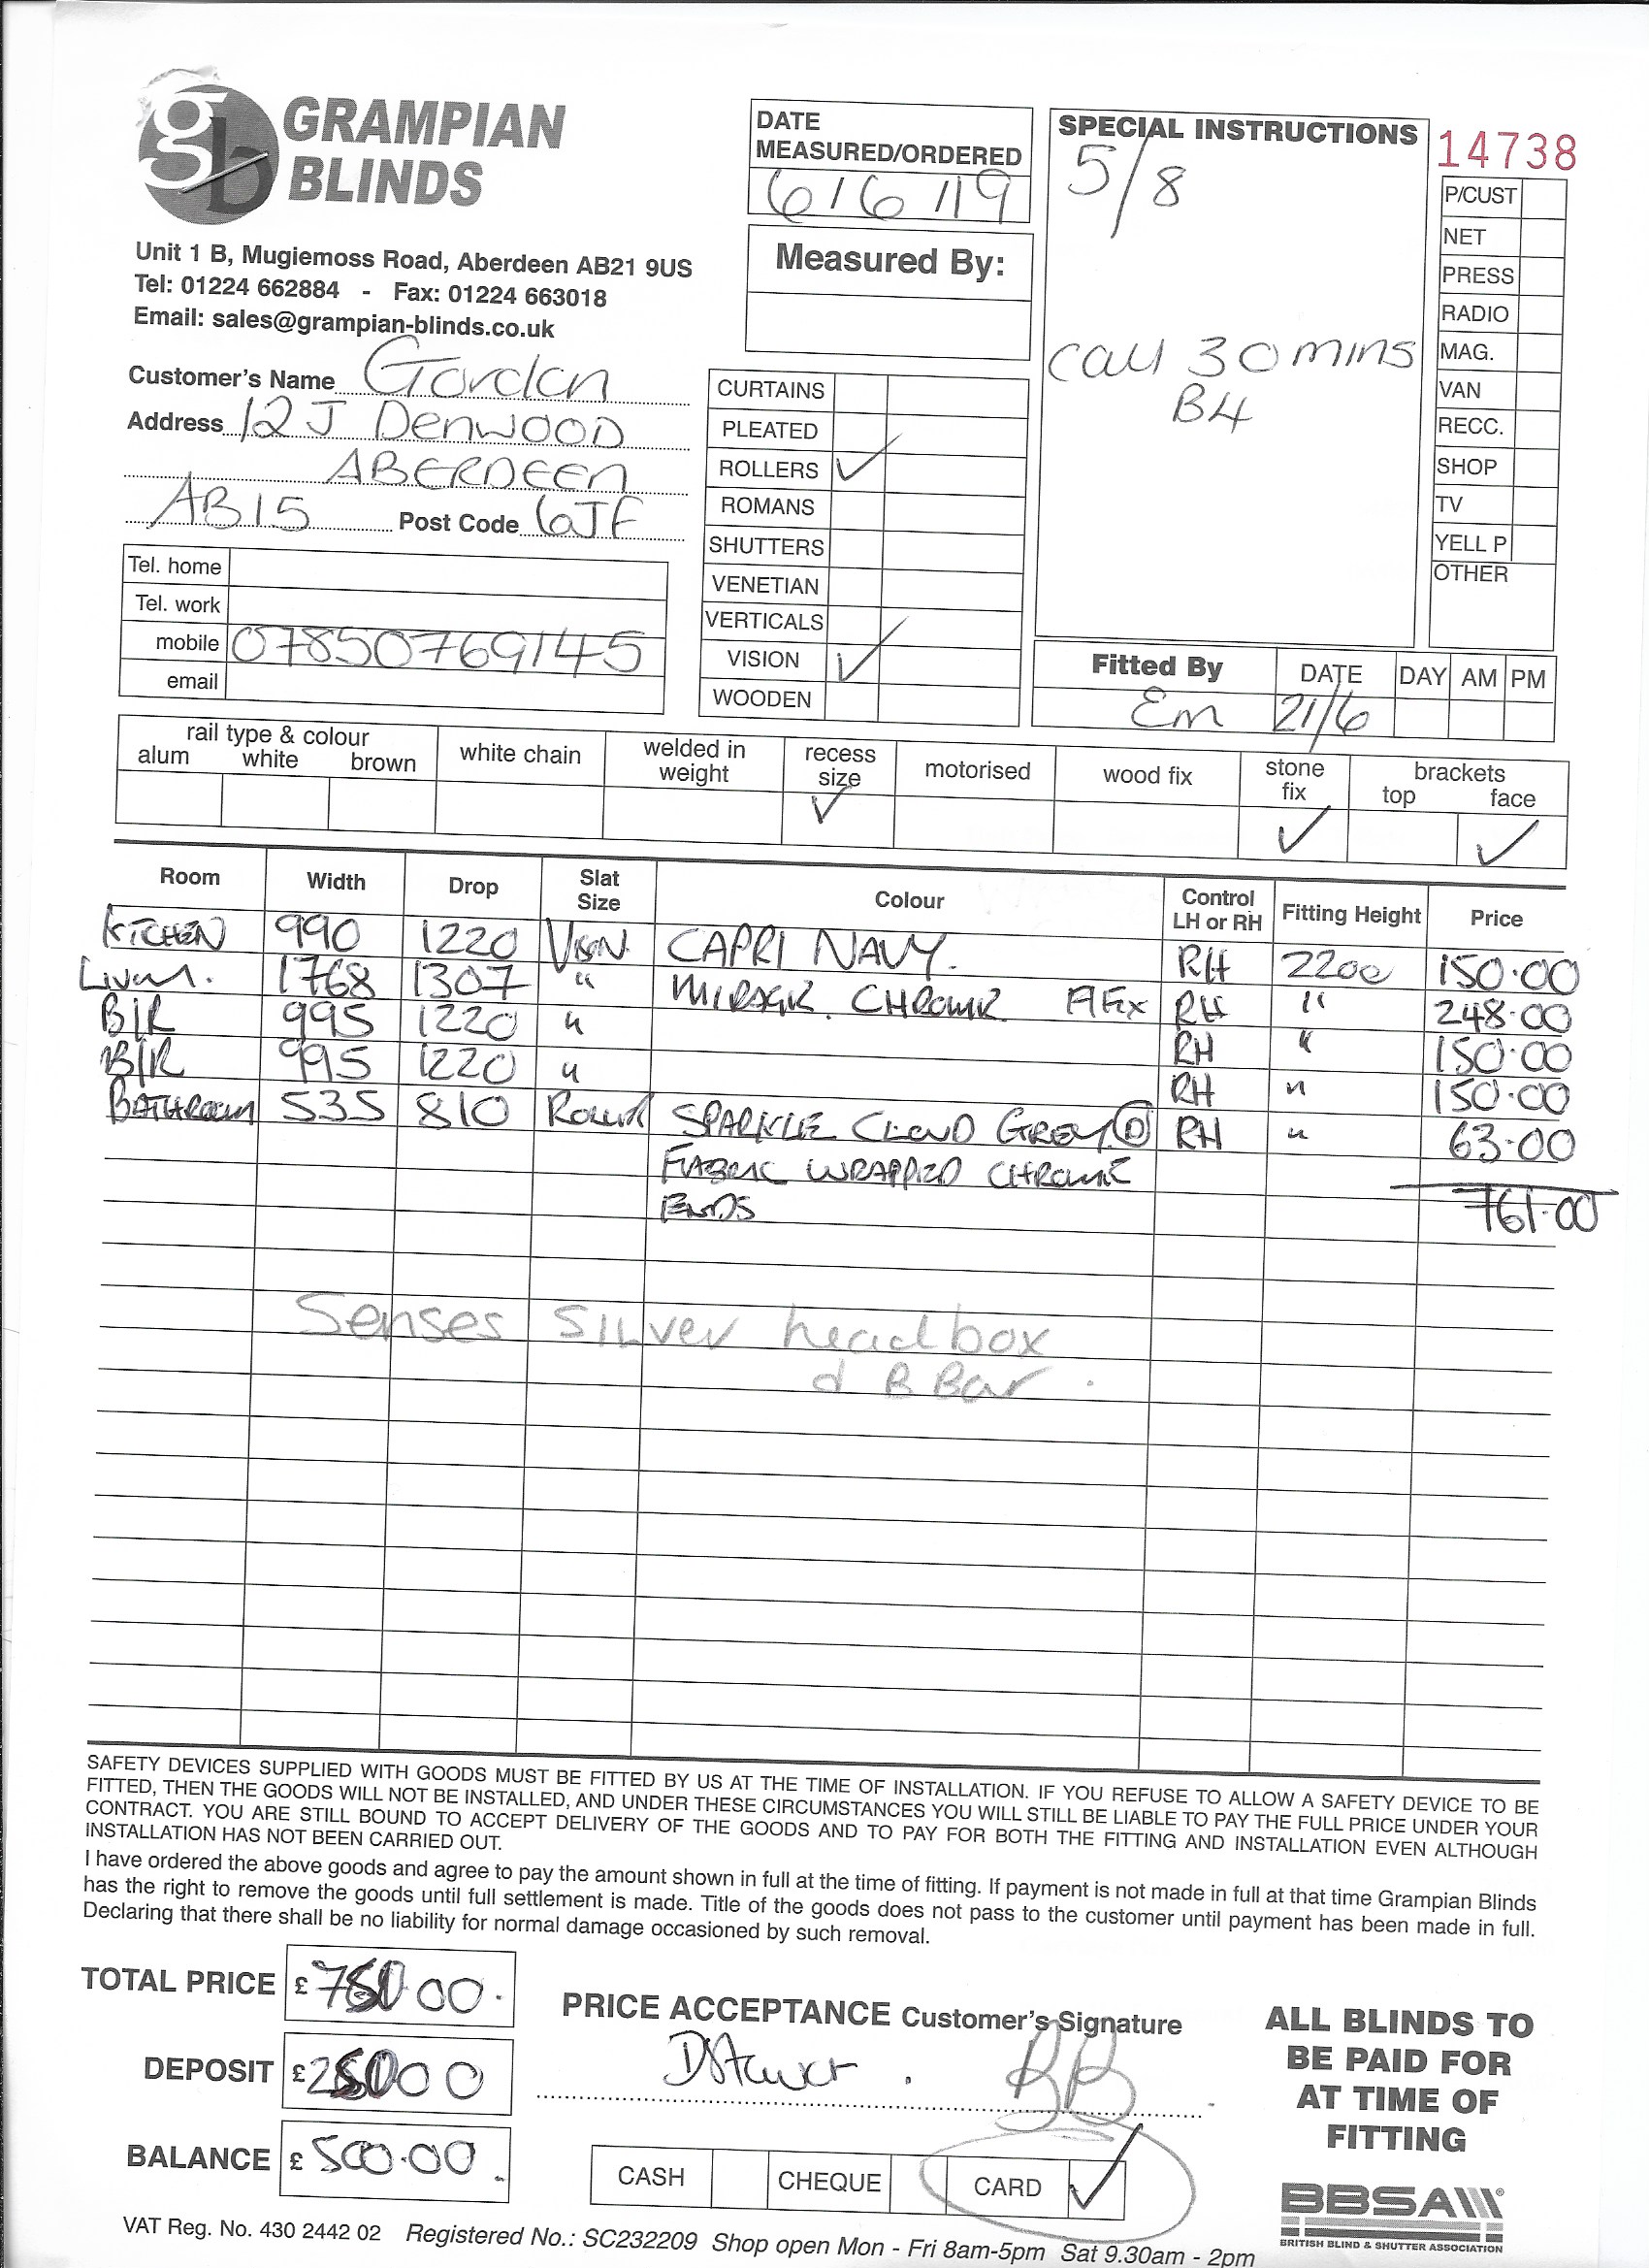 gb GRAMPIAN
BLINDS
Unit 1 B, Mugiemoss Road, Aberdeen AB21 9US
Tel: 01224 662884 - Fax: 01224 663018
Email: sales@grampian-blinds.co.uk
Customer's Name Gordon
Address 12 J Denwood
ABERDEEN
AB15 Post Code 6JF
Tel. home
Tel. work
mobile 07850769145
email
DATE
MEASURED/ORDERED
6/6/19
Measured By:
CURTAINS
PLEATED
ROLLERS ✓
ROMANS
SHUTTERS
VENETIAN
VERTICALS
VISION ✓
WOODEN
SPECIAL INSTRUCTIONS
5/8
Call 30 mins
B4
14738
P/CUST
NET
PRESS
RADIO
MAG.
VAN
RECC.
SHOP
TV
YELL P
OTHER
Fitted By DATE DAY AM PM
Em 21/6
rail type & colour
alum white brown
white chain
welded in
weight
recess
size ✓
motorised
wood fix
stone
fix ✓
brackets
top face ✓
Room Width Drop Slat Size Colour Control LH or RH Fitting Height Price
KITCHEN 990 1220 VISION CAPRI NAVY. RH 2200 150.00
1768 1307 " CHROME RH " 248.00
B/R 995 1220 " RH " 150.00
B/R 995 1220 " RH " 150.00
BATHROOM 535 810 ROLLER SPARKLE CLOUD GREY D RH " 63.00
FABRIC WRAPPED CHROME
ENDS
761.00
Senses SILver headbox
B Bar.
SAFETY DEVICES SUPPLIED WITH GOODS MUST BE FITTED BY US AT THE TIME OF INSTALLATION. IF YOU REFUSE TO ALLOW A SAFETY DEVICE TO BE
FITTED, THEN THE GOODS WILL NOT BE INSTALLED, AND UNDER THESE CIRCUMSTANCES YOU WILL STILL BE LIABLE TO PAY THE FULL PRICE UNDER YOUR
CONTRACT. YOU ARE STILL BOUND TO ACCEPT DELIVERY OF THE GOODS AND TO PAY FOR BOTH THE FITTING AND INSTALLATION EVEN ALTHOUGH
INSTALLATION HAS NOT BEEN CARRIED OUT.
I have ordered the above goods and agree to pay the amount shown in full at the time of fitting. If payment is not made in full at that time Grampian Blinds
has the right to remove the goods until full settlement is made. Title of the goods does not pass to the customer until payment has been made in full.
Declaring that there shall be no liability for normal damage occasioned by such removal.
TOTAL PRICE £ 750 00.
DEPOSIT £ 250 00
BALANCE £ 500.00
PRICE ACCEPTANCE Customer's Signature
CASH CHEQUE CARD ✓
ALL BLINDS TO
BE PAID FOR
AT TIME OF
FITTING
BBSA
BRITISH BLIND & SHUTTER ASSOCIATION
VAT Reg. No. 430 2442 02 Registered No.: SC232209 Shop open Mon - Fri 8am-5pm Sat 9.30am - 2pm